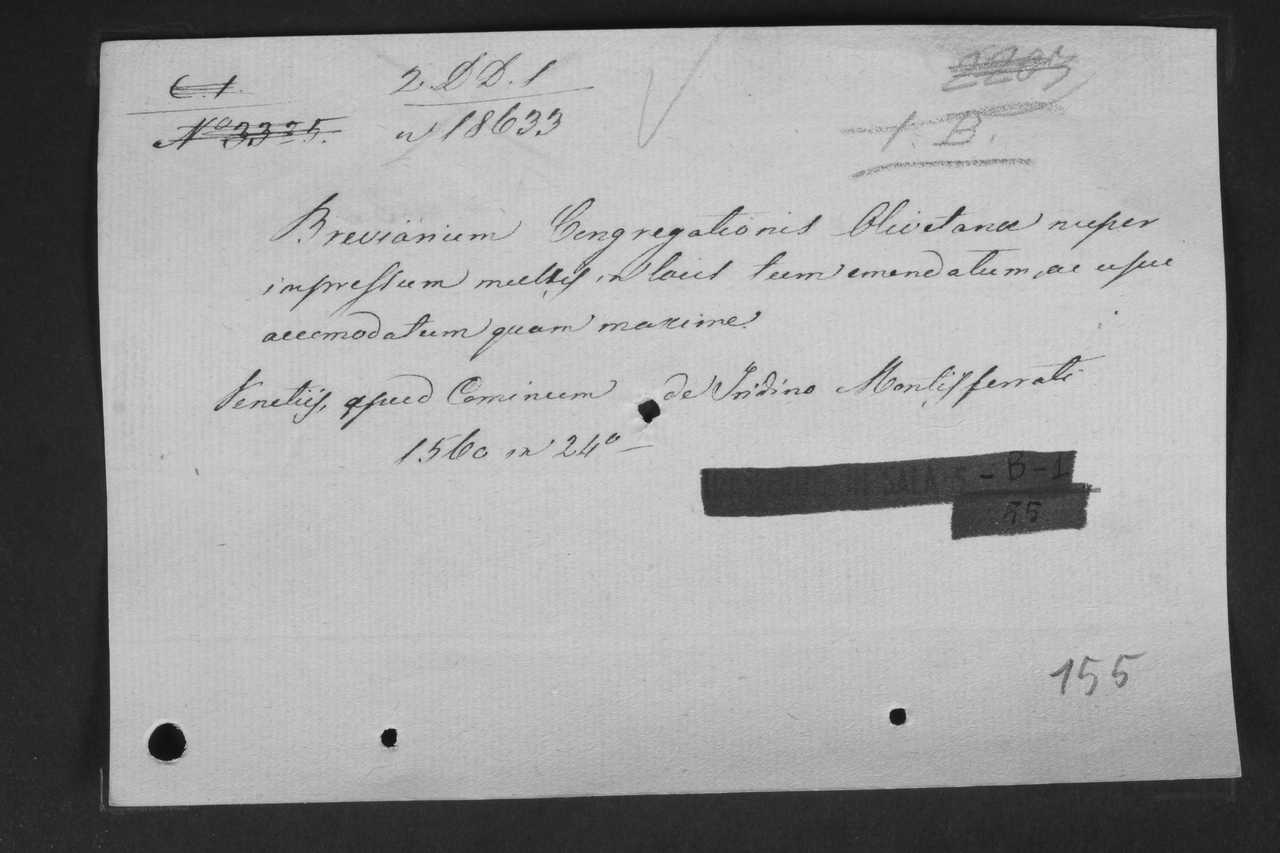 C. 1.
2. D D. 1
Nº 3325.
n 18633
1. B.
Breviarium Congregationis Olivetanæ nuper
impressum multis in locis tum emendatum, ac usui
accomodatum quam maxime.
Venetiis, apud Cominum de Tridino Montisferrati
1560 in 24º
SALA 5 - B - I
55
155